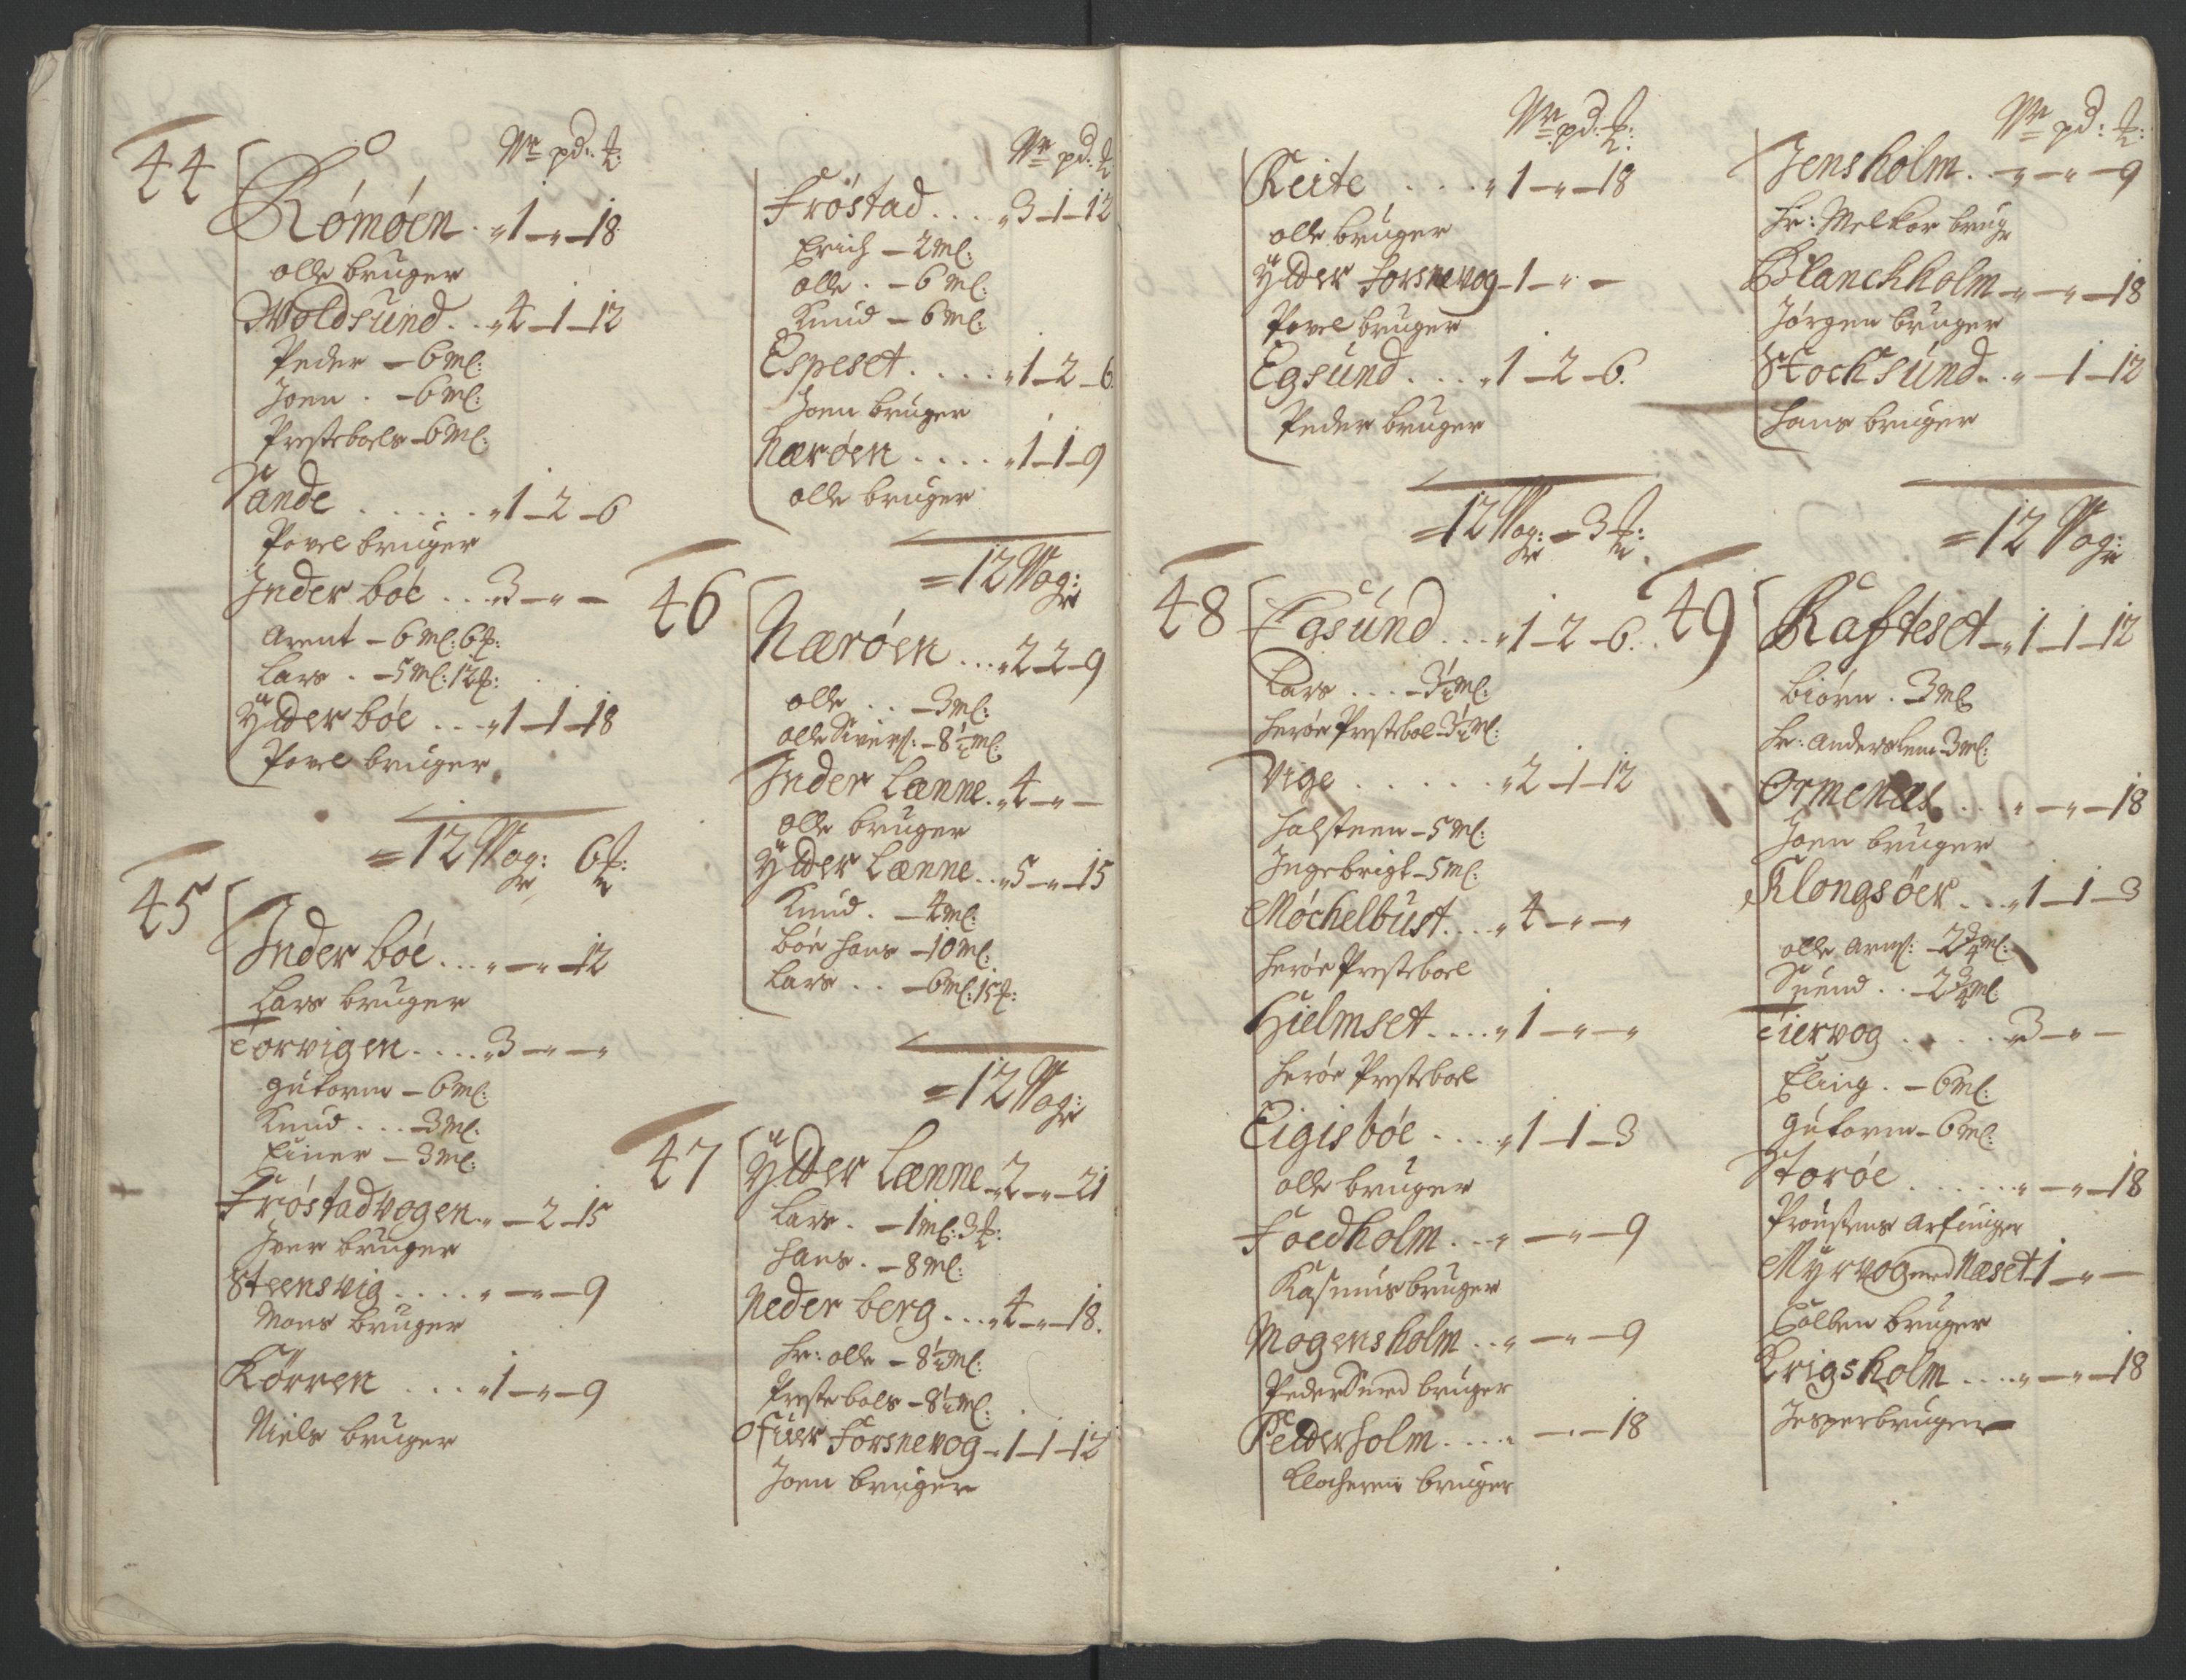 Wr pd: ℔:
44
Römöen . „1 – „ – 18
olle bruger
Woldsund . . „4 – 1 – 12
Peder – 6 ml:
Joen . – 6 ml:
Presteboels – 6 ml:
Sande . . . . . „1 – 2 – 6
Povel bruger
Inder böe . . . 3 – „ –
Arent – 6 ml: 6 ℔:
Lars . – 5 ml: 12 ℔:
Ytter böe . . „1 – 1 – 18
Povel bruger
= 12 Wog: 6 ℔:
45
Inder böe . . . „ – „ – 12
Lars bruger
Torvigen . . . . „3 – „ – „
Gutorm – 6 ml:
Knud . . . – 3 ml:
Einer – 3 ml:
Fröstadvogen . „ – 2 – 15
Iver bruger
Steensvig . . . . „ – „ – 9
Mons bruger
Körren . . . „1 – „ – 9
Niels bruger
Wr pd: ℔
Fröstad . . . . „3 – 1 – 12
Erich – 2 ml:
olle . – 6 ml:
Knud – 6 ml:
Espeset . . . . „1 – 2 – 6
Joen bruger
Næröen . . . . „1 – 1 – 9
olle bruger
= 12 Wog:
46
Næröen . . . „2 – 2 – 9
olle . . – 3 ml:
olle Sivers: – 8½ ml:
Inder Lænne . „4 – „ –
olle bruger
Ytter Lænne . . „5 – „ – 15
Knud . – 4 ml:
Böe Hans – 10 ml:
Lars . . – 6 ml: 15 ℔:
= 12 Wog:
47
Ytter Lænne – 2 – „ – 21
Lars . – 1 ml: 3 ℔:
Hans . – 8 ml:
Neder berg . . . „4 – „ – 18.
Hr: olle – 8½ ml:
Prestebols – 8½ ml:
Ofuer Forsnevog – 1 – 1 – 12
Joen bruger
Wr pd: ℔:
Reite . . . . „1 – „ – 18
olle bruger
Ytter Forsnevog – 1 – „ –
Povel bruger
Egsund . . . . „1 – 2 – 6.
Peder bruger
= 12 Wog: – 3 ℔:
48
Egsund . . . „1 – 2 – 6.
Lars . . . – 3½ ml:
Heröe Prestebol – 3½ ml:
Vige . . . . . . „2 – 1 – 12
Halsteen – 5 ml:
Ingebrigt – 5 ml:
Möchelbust . . . „4 – „ – „
Heröe Presteboel
Hielmset . . . . „1 – „ – „
Heröe Presteboel
Eigisböe . . . . „1 – 1 – 3
olle bruger
Foedholm . . „ – „ – 9
Rasmus bruger
Mogensholm . . „ – „ – 9
Peder Svend bruger
Pedersholm . . . . „ – „ – 18
Klocheren bruger
Wr pd: ℔:
Jensholm . – „ – „ – 9
Hr: Melkor bruger
Blanckholm – „ – „ – 18
Jörgen bruger
Stocksund . . „ – 1 – 12
Hans bruger
= 12 Wog:
49
Rafteset – „1 – 1 – 12
Biörn . 3 ml
Hr: Anderslem 3 ml:
Ormenæs . . . „ – „ – 18
Joen bruger
Klongsöer . . „1 – 1 – 3
olle Arns: – 2¾ ml:
Svend . . – 2¾ ml:
Tiervog . . . . „3 – „ –
Eling . – 6 ml:
Gutorm – 6 ml:
Storöe . . . . . . „ – „ – 18
Proustens Arfuinger
Myrvog med Næset 1 – „ –
Colben bruger
Krigsholm . . . . „ – „ – 18
Jesper bruger